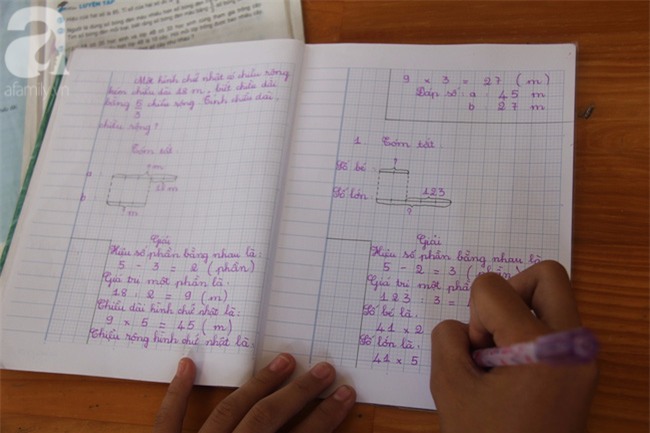 afamily.vn
LUYỆN TẬP
Một hình chữ nhật có chiều rộng
kém chiều dài 18 m, biết chiều dài
bằng 5/3 chiều rộng. Tính chiều dài,
chiều rộng?
Tóm tắt
? m
a :
18 m
b :
? m
Giải
Hiệu số phần bằng nhau là
5 - 3 = 2 ( phần )
Giá trị một phần là :
18 : 2 = 9 ( m )
Chiều dài hình chữ nhật là :
9 x 5 = 45 ( m )
Chiều rộng hình chữ nhật là :
9 x 3 = 27 ( m )
Đáp số : a : 45 m
b : 27 m
1 Tóm tắt :
?
Số bé :
123
Số lớn :
?
Giải
Hiệu số phần bằng nhau là
5 - 2 = 3 ( phần )
Giá trị một phần
123 : 3 =
Số bé là :
41 x 2
Số lớn là :
41 x 5